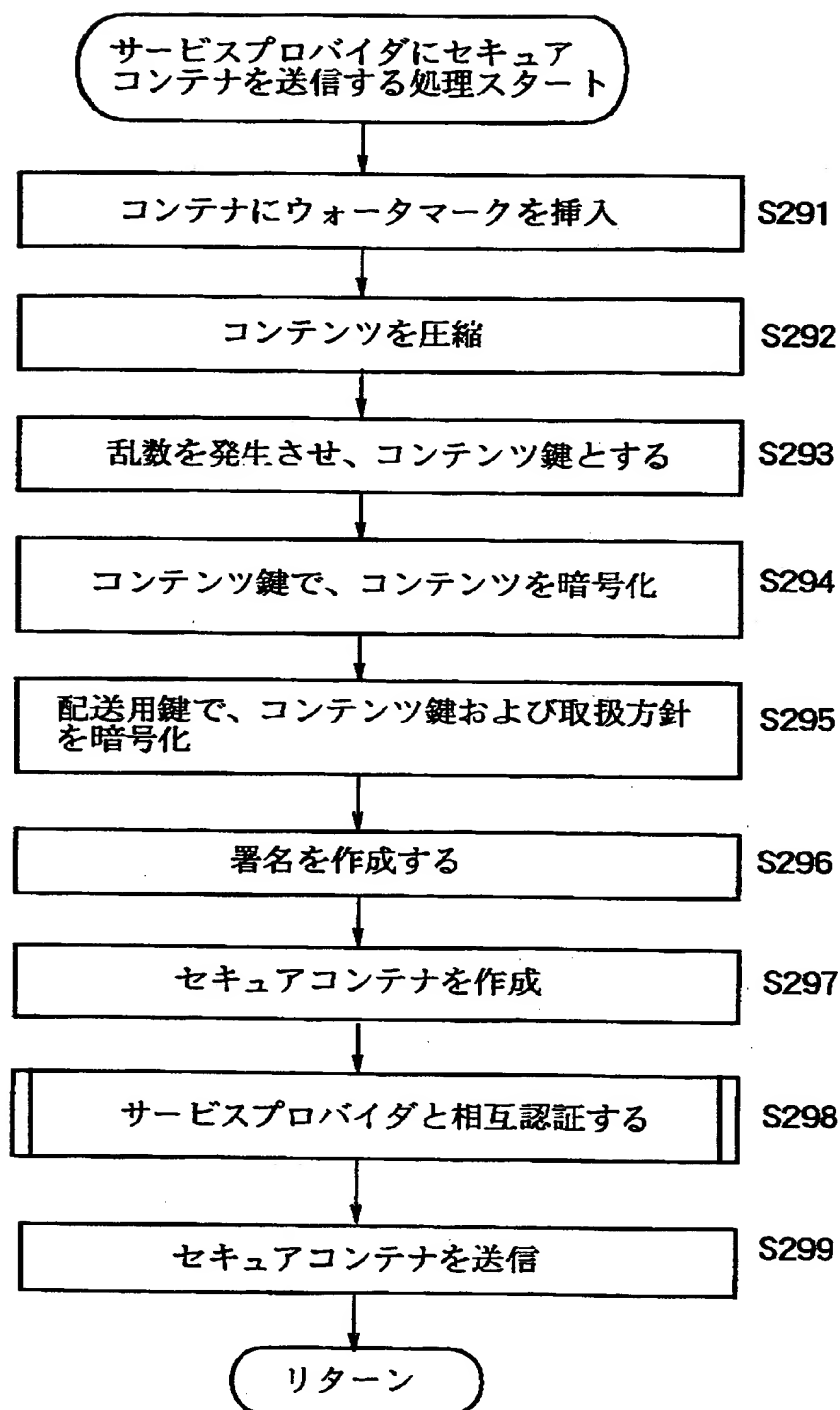 サービスプロバイダにセキュア
コンテナを送信する処理スタート
コンテナにウォータマークを挿入
S291
コンテンツを圧縮
S292
乱数を発生させ、コンテンツ鍵とする
S293
コンテンツ鍵で、コンテンツを暗号化
S294
配送用鍵で、コンテンツ鍵および取扱方針
を暗号化
S295
署名を作成する
S296
セキュアコンテナを作成
S297
サービスプロバイダと相互認証する
S298
セキュアコンテナを送信
S299
リターン